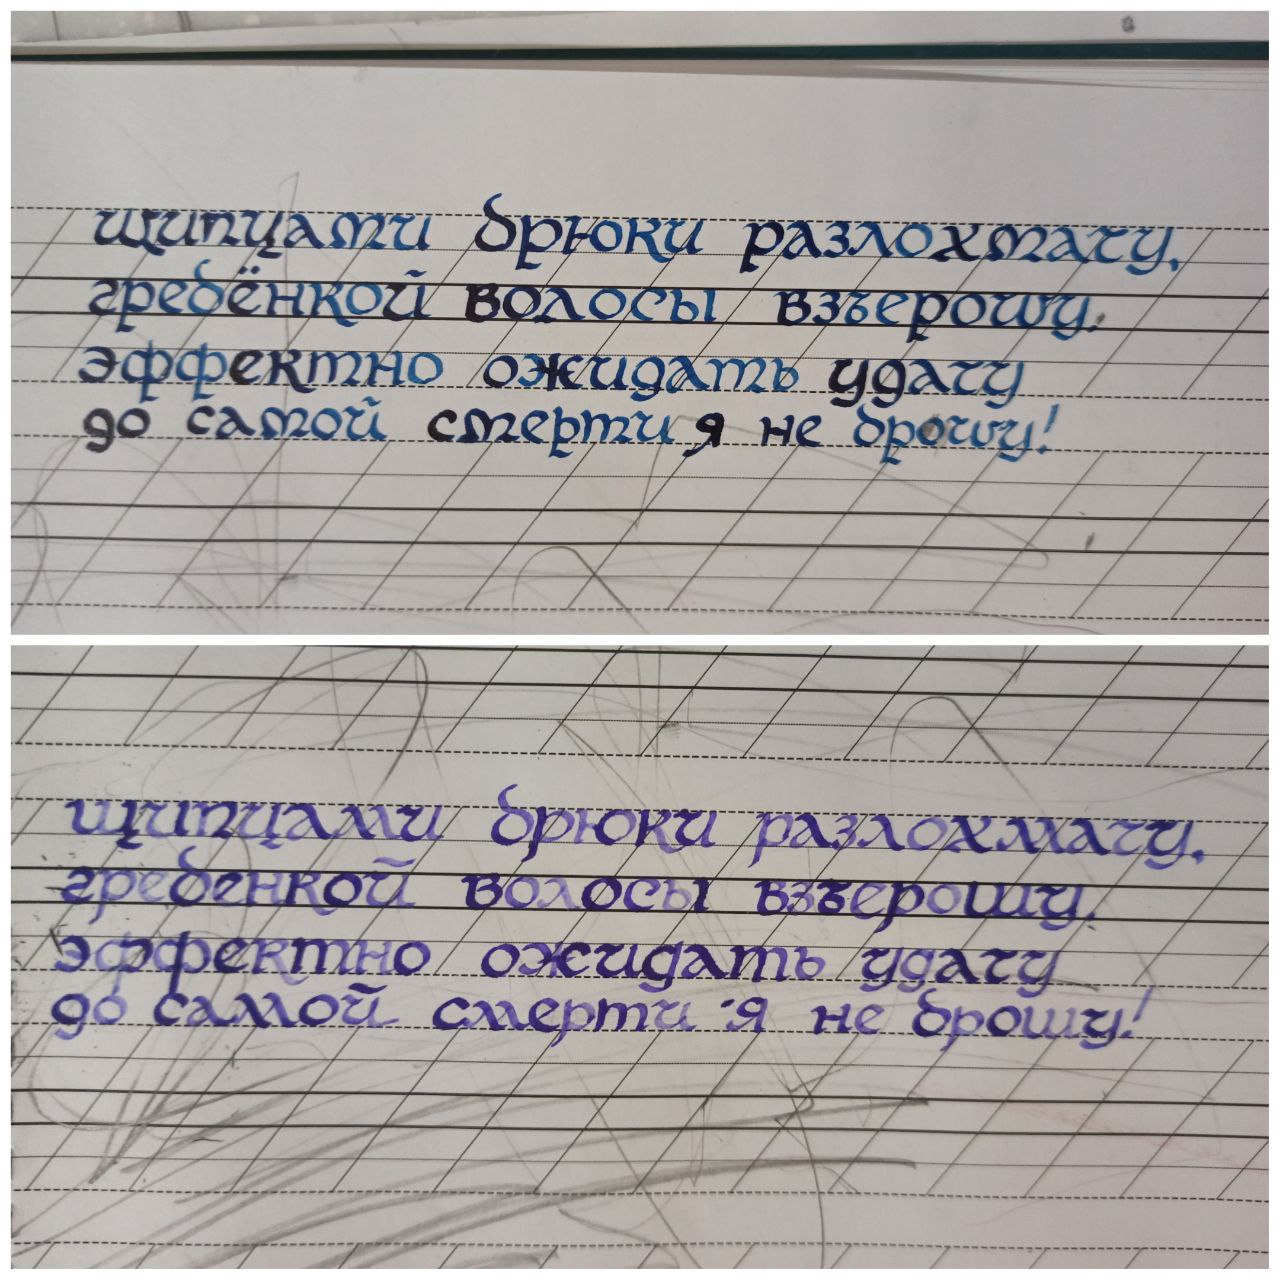 щипцами брюки разлохмачу,
гребёнкой волосы взъерошу.
эффектно ожидать удачу
до самой смерти я не брошу!
щипцами брюки разлохмачу,
гребенкой волосы взъерошу.
эффектно ожидать удачу
до самой смерти я не брошу!